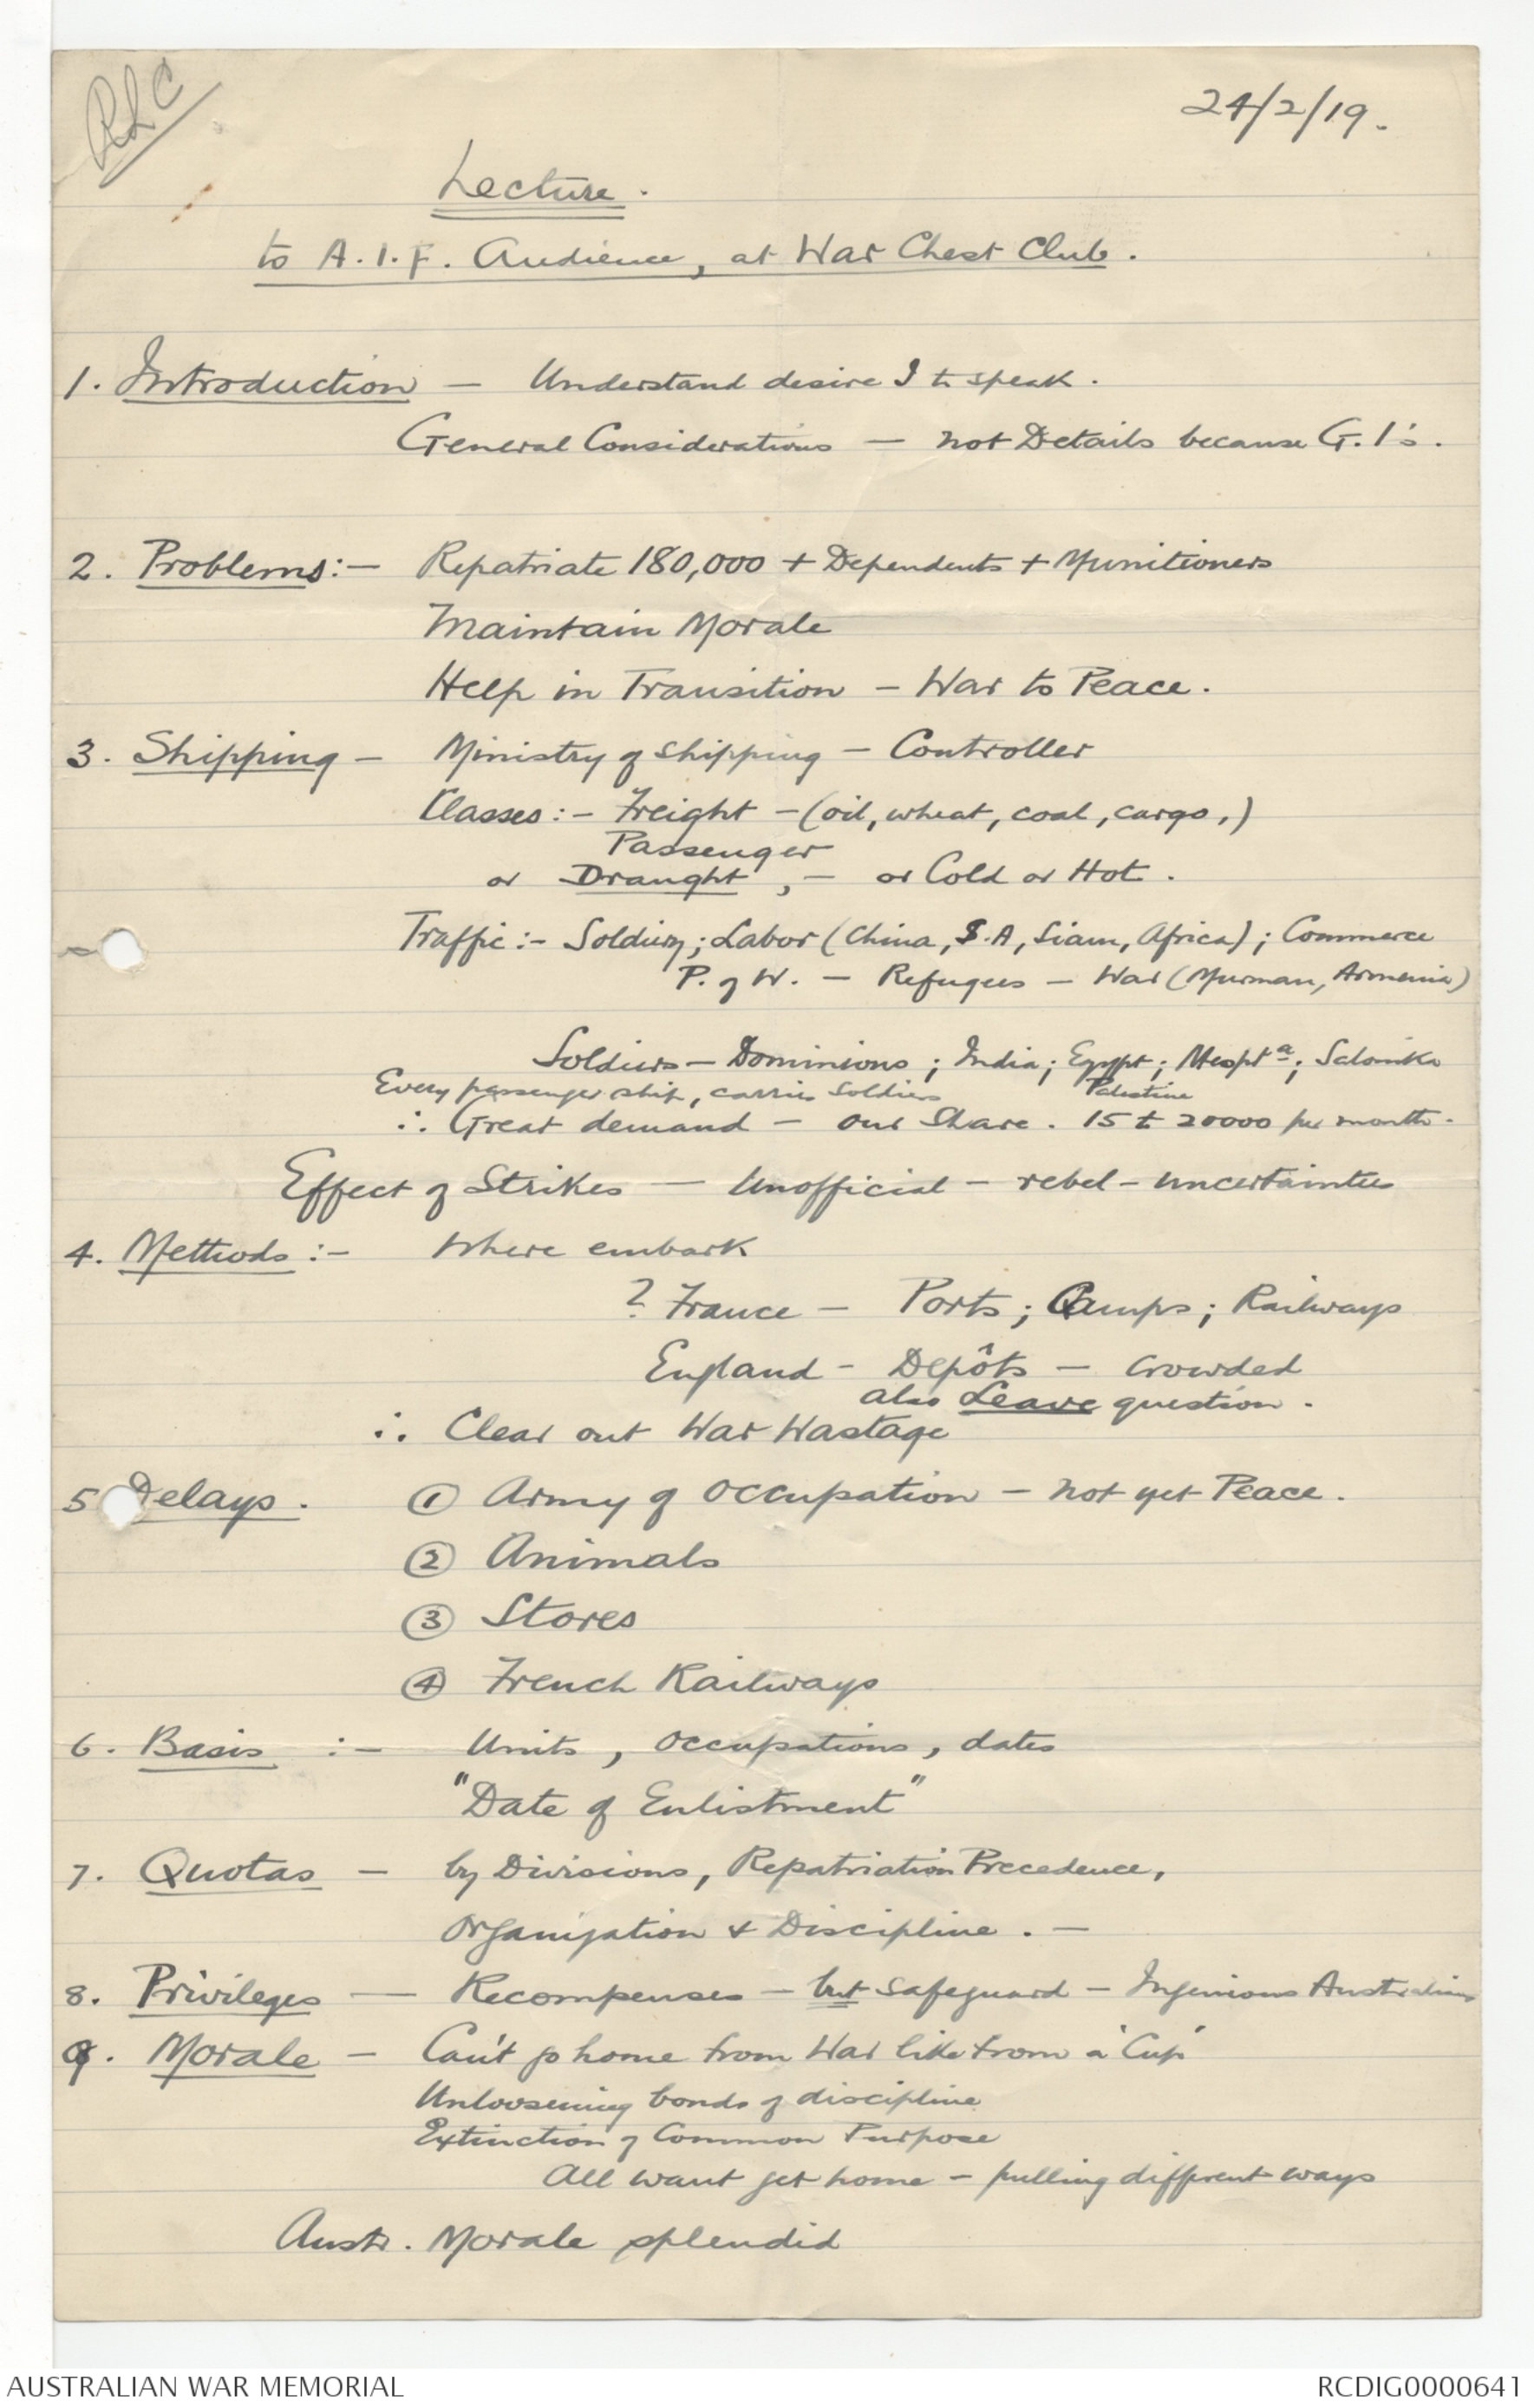 RLC
24/2/19.
Lecture.
to A.I.F. Audience, at War Chest Club.
1. Introduction — Understand desire I to speak.
General Considerations — not Details because G.I's.
2. Problems:— Repatriate 180,000 + Dependents + Munitioners
Maintain Morale
Help in Transition — War to Peace.
3. Shipping — Ministry of Shipping — Controller
Classes:— Freight — (oil, wheat, coal, cargo,)
Passenger
or Draught, — or Cold or Hot.
Traffic:— Soldiery; Labor (China, S.A, Siam, Africa); Commerce
P. of W. — Refugees — War (Murman, Armenia)
Soldiers — Dominions; India; Egypt; Mespta; Salonika
Every passenger ship, carries soldiers Palestine
∴ Great demand — our Share. 15 to 20000 per month.
Effect of Strikes — Unofficial — rebel — uncertainties
4. Methods:— Where embark
? France — Ports; Camps; Railways
England — Depôts — crowded
also Leave question.
∴ Clear out War Wastage
5 Delays. ① Army of Occupation — not yet Peace.
② Animals
③ Stores
④ French Railways
6. Basis :— Units, occupations, dates
"Date of Enlistment"
7. Quotas — by Divisions, Repatriation Precedence,
Organization & Discipline. —
8. Privileges — Recompenses — but safeguard — Ingenious Australians
9. Morale — Can't go home from War like from a 'Cup'
Unloosening bonds of discipline
Extinction of Common Purpose
All want get home — pulling different ways
Austr. Morale splendid
AUSTRALIAN WAR MEMORIAL
RCDIG0000641